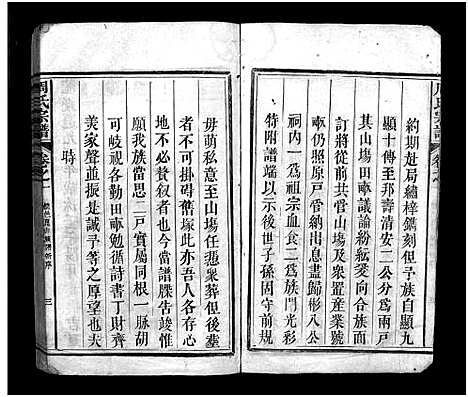 周氏宗譜
約期赴局繡梓鐫刻但予族自顯九
顯十傳至邦壽清安二公分為兩戶
其山塲田畞議論紛紜爰向合族訂
畞仍照原戶管納出息盡歸彬八公
祠內一為祖宗血食二為族門光彩
特附譜端以示于後世子孫固守前規
毋萌私意至山場任憑衆葬但後塟
者不可掛碍舊塚此亦吾人各存心
地不必贅叙者也今當譜牒告竣惟
願我族當思二戶實屬同根一脉胡
可歧視各勤田畞勉循詩書丁財齊
美家聲並振是誠予等之厚望也夫
時
周氏宗譜
卷之一
三